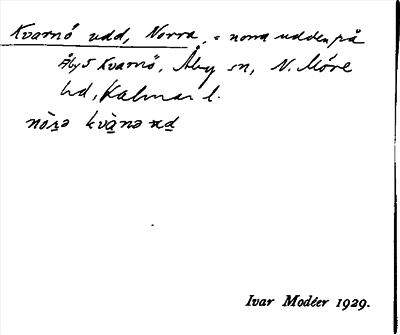 Kvarnö udd, Norra, = norra udden på
Åby 5 Kvarnö, Åby sn, N. Möre
hd, Kalmar l.
nòṟə kvàṉə ud̲
Ivar Modéer 1929.